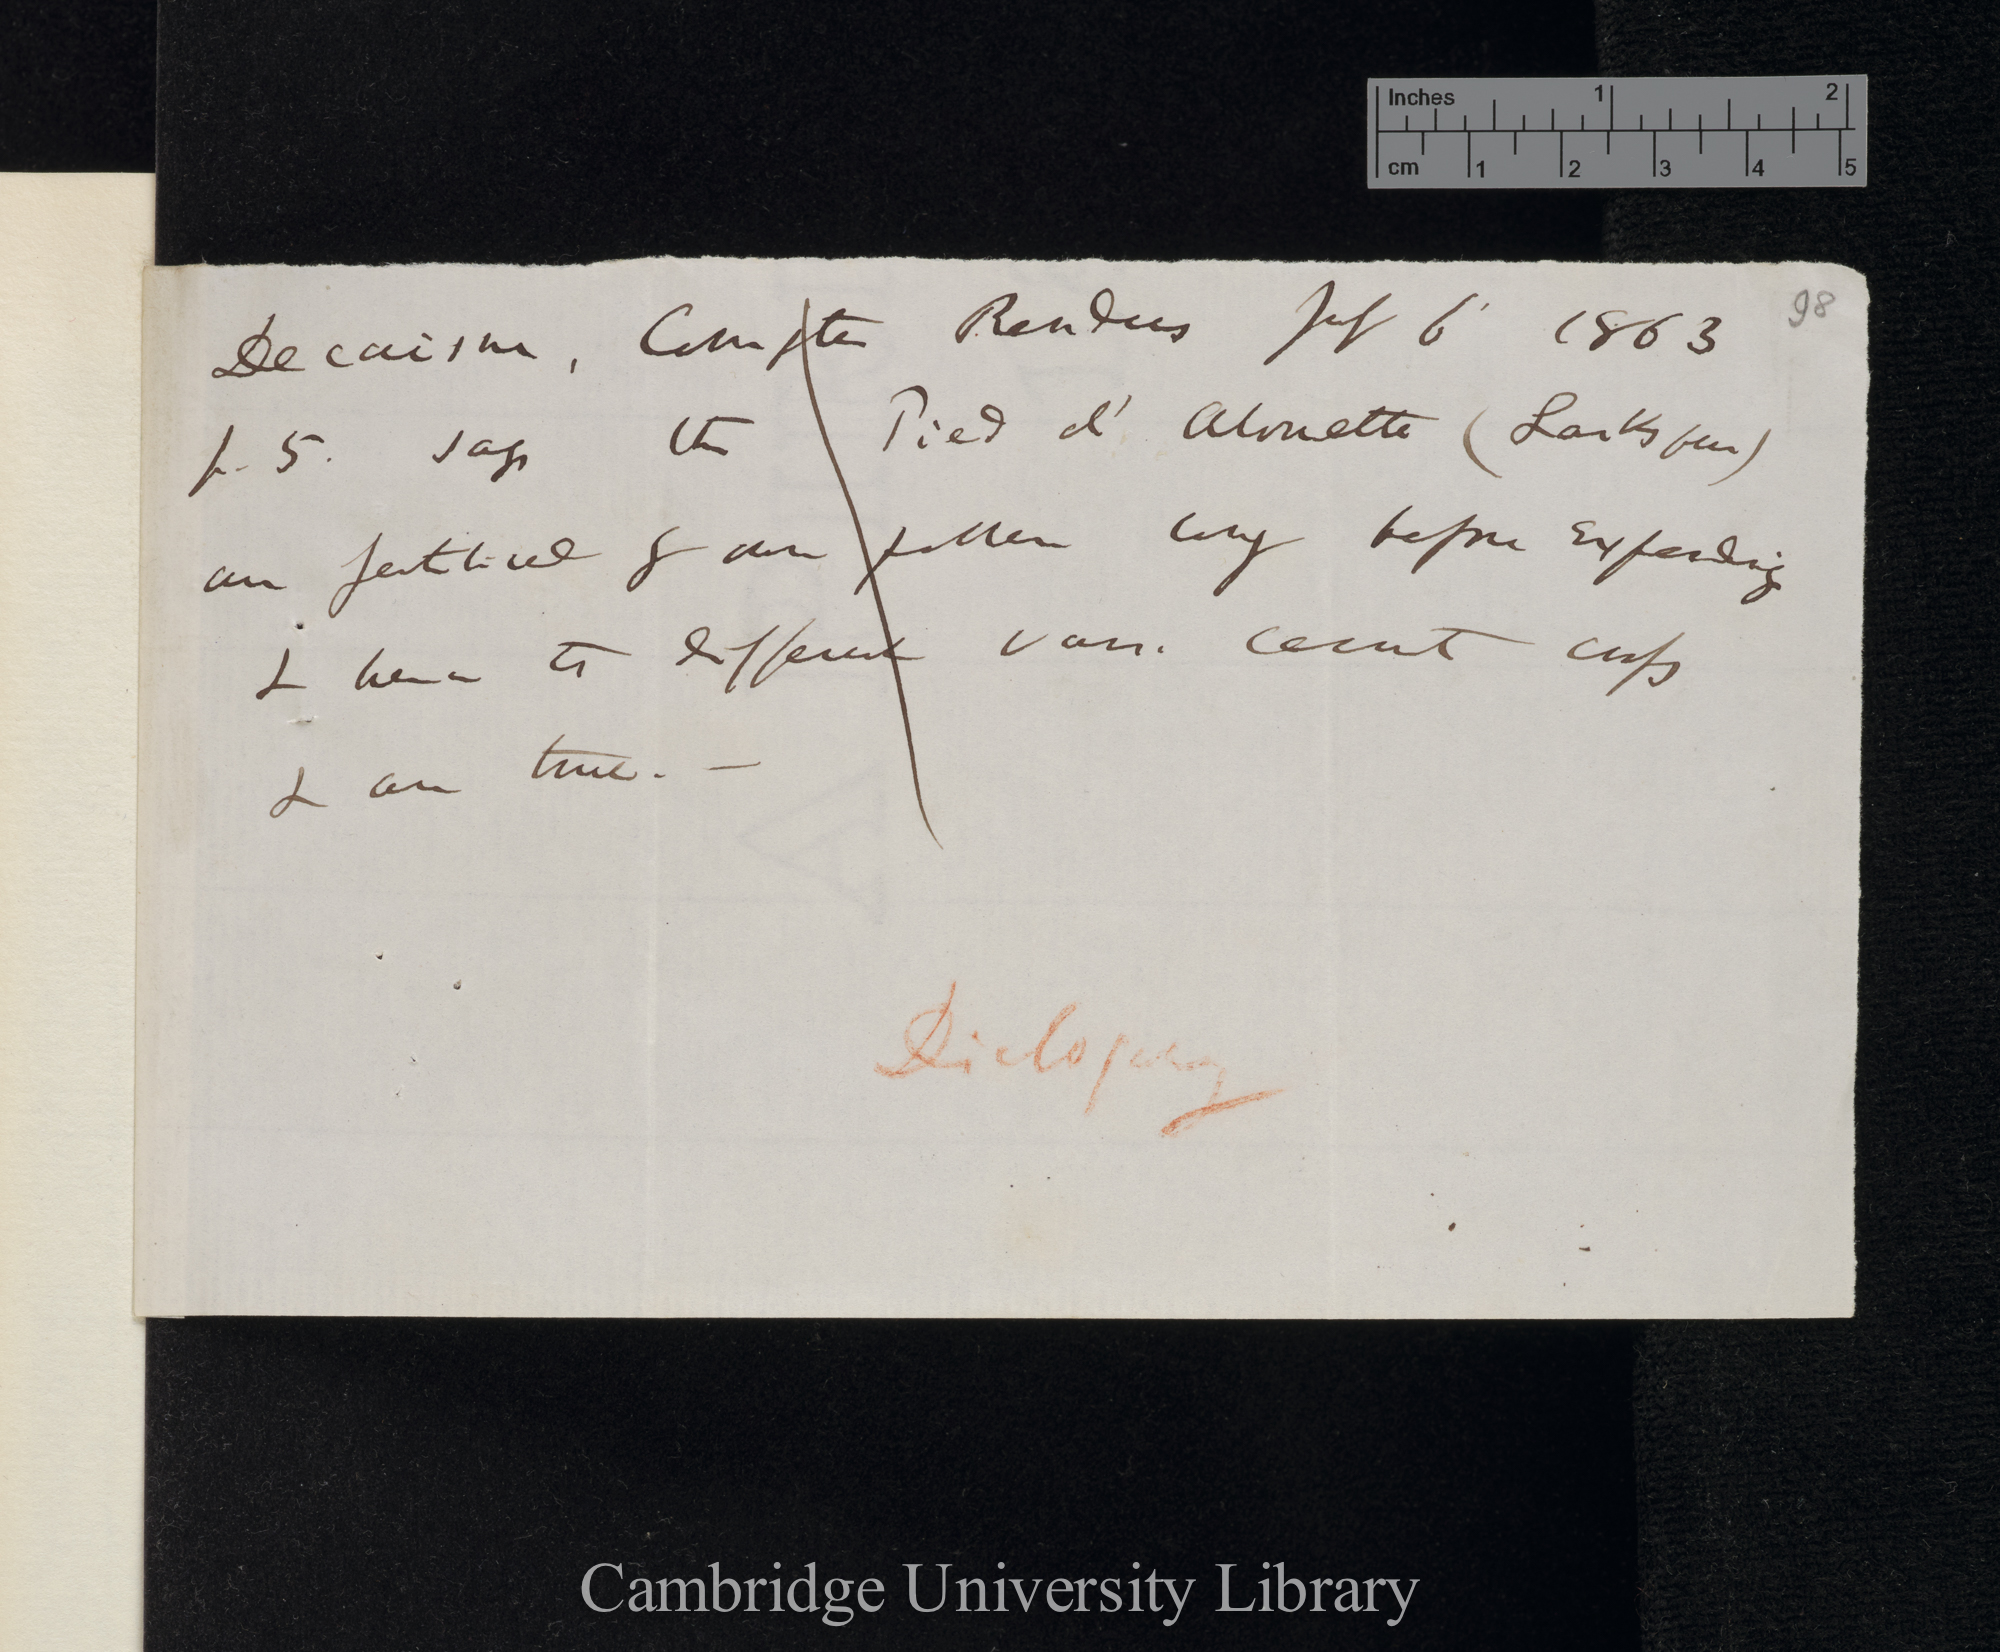 Inches 1 2
cm 1 2 3 4 5
98
Decaisne, Comptes Rendus July 6 1863
p. 5. says the Pied d' Alouette (Larkspur)
are fertilised by own pollen long before expanding
& hence the different vars. cannot cross
& are true. —
Dichogamy
Cambridge University Library